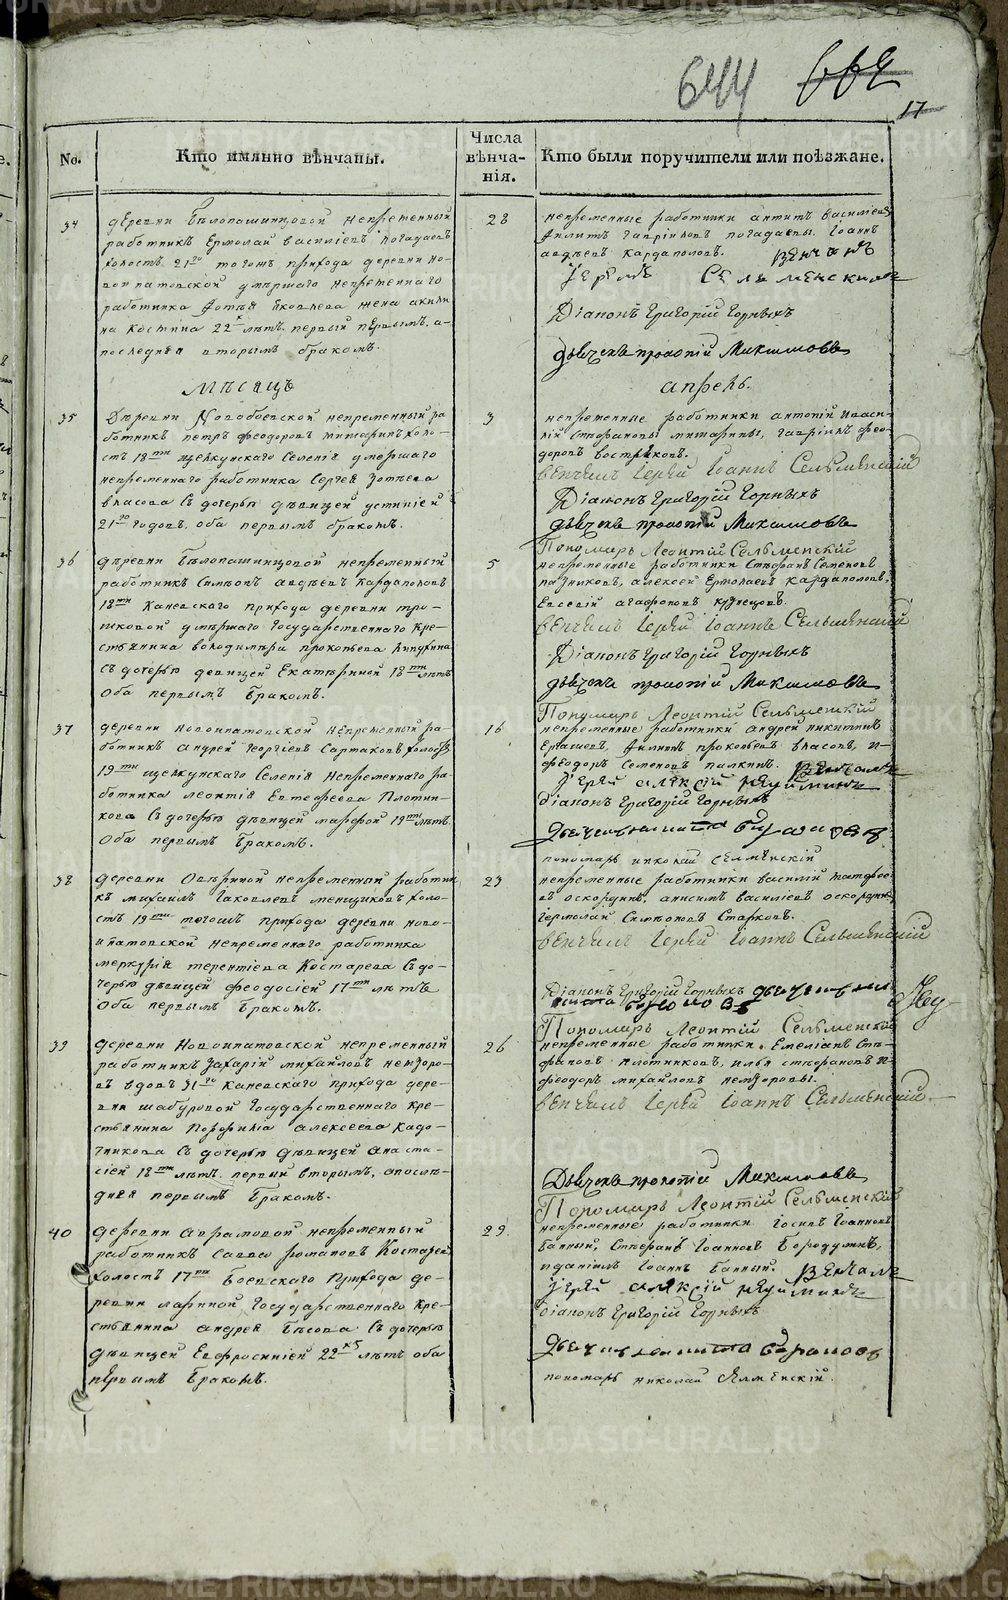 644
17
No.
Кто имянно вѣнчаны.
Числа
вѣнча-
нія.
Кто были поручители или поѣзжане.
34
деревни Бѣлопашинцовой непременный
работникъ Ермолай василіевъ погадаевъ
холостъ 21го тогожъ прихода деревни но-
воипатовской умѣршаго непременнаго
работника яковлева жена акили-
на Костина 22х лѣтъ, первый первымъ, а-
последняя вторымъ бракомъ.
28
непременные работники василіевъ
Филипъ гавриловъ погадаевы. Іоаннъ
авдѣевъ кардаполовъ. Венчалъ
Іерей Селменскій
Діаконъ Григорій Горныхъ
дьячекъ прокопій Максимовъ
Мѣсяцъ
апрель.
35
Деревни Новобоевской непременный ра-
ботникъ петръ феодоровъ мишаринъ холо-
стъ 18ти щелкунскаго Селенія умершаго
непременнаго работника Сергея Зотѣева
власова Съ дочерью дѣвицей устиніей
21го годовъ, оба первымъ бракомъ.
3
непременные работники антоній иваси-
лій Стефановы мишарины, гавріилъ фео-
доровъ востряковъ.
венчалъ Іерей Іоаннъ Селменскій
Діаконъ Григорій Горныхъ
дьячекъ прокопій Максимовъ
Пономарь Леонтій Селменскій
36
деревни Бѣлопашинцовой непременный
работникъ Симеонъ авдѣевъ Кардаполовъ
18ти Каневскаго прихода деревни тро-
шковой умѣршаго Государственнаго кре-
стьянина володимира прокопьева
Съ дочерью девицей Екатериной 18ти лѣтъ
Оба первымъ Бракомъ.
5
непременные работники Стефанъ Семеновъ
алексей Ермолаевъ кардаполовъ,
Евсевій агафоновъ кузнецовъ.
венчалъ Іерей Іоаннъ Селменскій
Діаконъ Григорій Горныхъ
дьячекъ прокопій Максимовъ
Пономарь Леонтій Селменскій
37
деревни новоипатовской непременный ра-
ботникъ андрей Георгіевъ Сартаковъ холостъ
19ти щелкунскаго Селенія Непременнаго ра-
ботника леонтія Плотни-
кова Съ дочерью дѣвицей марфой 19ти лѣтъ
Оба первымъ Бракомъ.
16
непременные работники андрей никитинъ
Филипъ прокопьевъ власовъ, и-
феодоръ Семеновъ палкинъ. Венчалъ
Іерей алексій
діаконъ Григорій Горныхъ
пономарь николай селменскій
38
деревни Осѣриной непременный работни-
къ михаилъ Іаковлевъ менщиковъ холо-
стъ 19ти тогожъ прихода деревни ново-
ипатовской непременнаго работника
меркурія терентіева Костарева Съ до-
черью дѣвицей феодосіей 17ти лѣтъ
Оба первымъ Бракомъ.
23
непременные работники василій матфее-
въ оскординъ, анисимъ василіевъ оскординъ,
Іермолай Симеоновъ Старковъ.
венчалъ Іерей Іоаннъ Селменскій
Діаконъ Григорій Горныхъ
Пономарь Леонтій Селменскій
39
деревни Новоипатовской непременный
работникъ Захарій михайловъ немзоро-
въ вдовъ 31го каневскаго прихода дере-
вни шабуровой Государственнаго кре-
стьянина Порфирія алексеева кадо-
чникова Съ дочерью дѣвицей анаста-
сіей 18ти лѣтъ, первый вторымъ, апослѣ-
дняя первымъ Бракомъ.
26
непременные работники. Емеліанъ Сте-
фановъ плотниковъ, илья стефановъ и
феодоръ михайловъ немзоровы.
венчалъ Іерей Іоаннъ Селменскій
Дьячекъ прокопій Максимовъ
Пономарь Леонтій Селменскій
40
деревни аврамовой непременный
работникъ савва романовъ Костаревъ
холостъ 17ти Боевскаго Прихода де-
ревни лариной Государственнаго кре-
стьянина андрея Бѣсова Съ дочерью
дѣвицей Евфросиніей 22хъ лѣтъ оба
первымъ Бракомъ.
29
непременные работники. Іосифъ Іоанновъ
банный, Стефанъ Іоанновъ Бородулинъ,
Іоаннъ банный. Венчалъ
Іерей алексій
діаконъ Григорій Горныхъ
пономарь николай Селменскій
METRIKI.GASO-URAL.RU